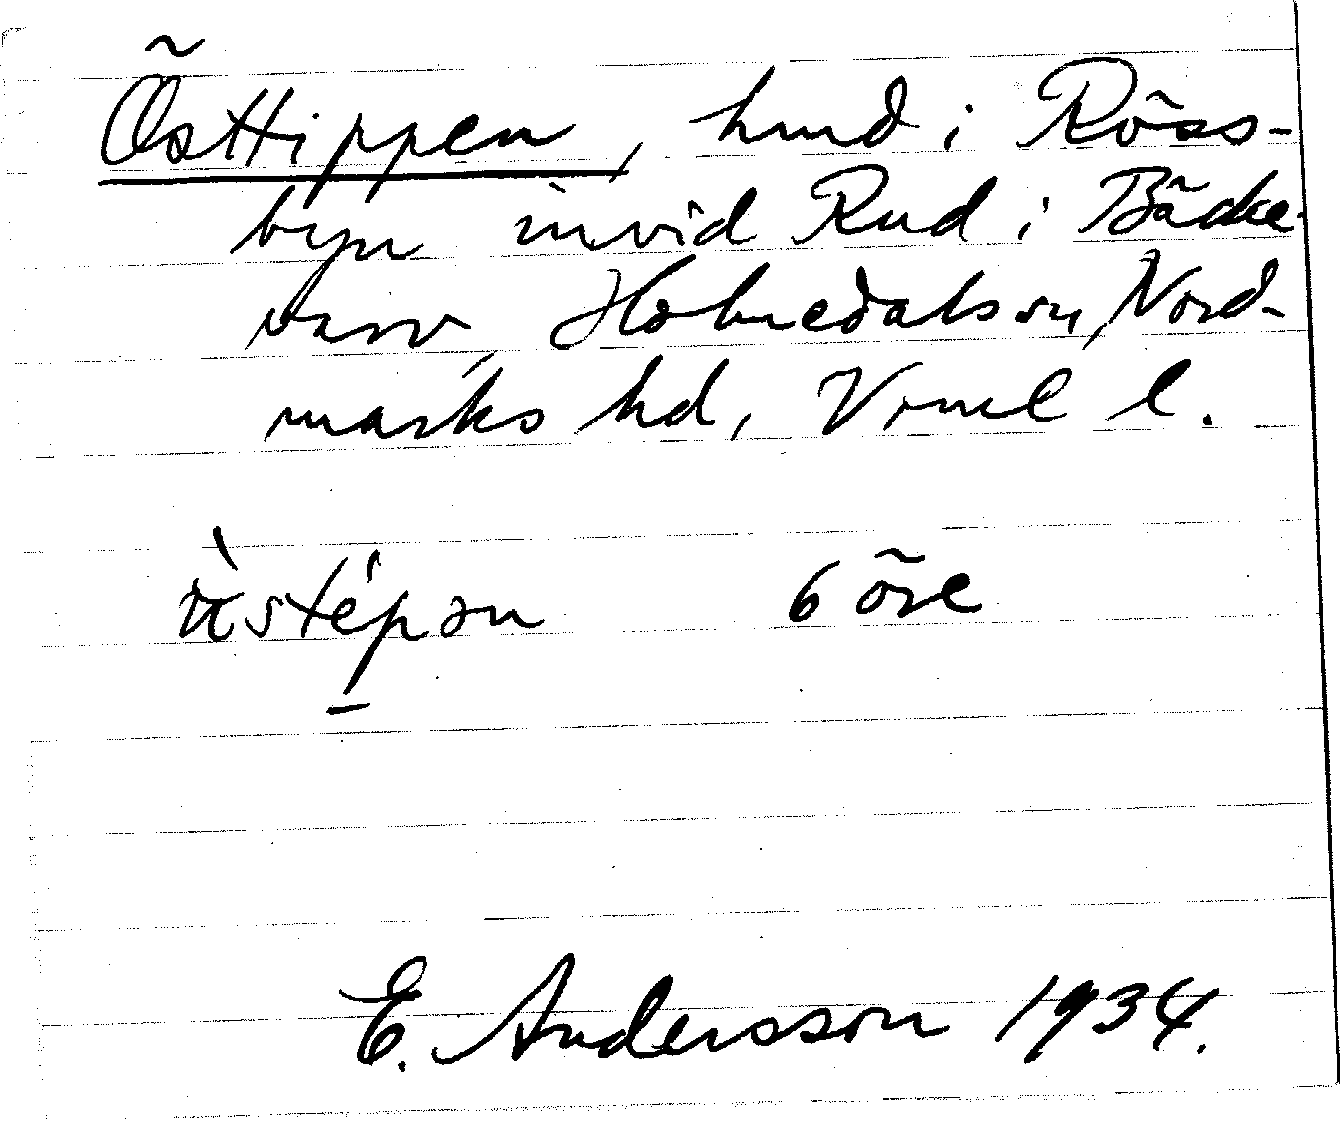 Östtippen, hund i Röss-
byn invid Rud i Bäcke-
varv, Holmedals sn, Nord-
marks hd, Vrml l.
6 öre
E. Andersson 1934.